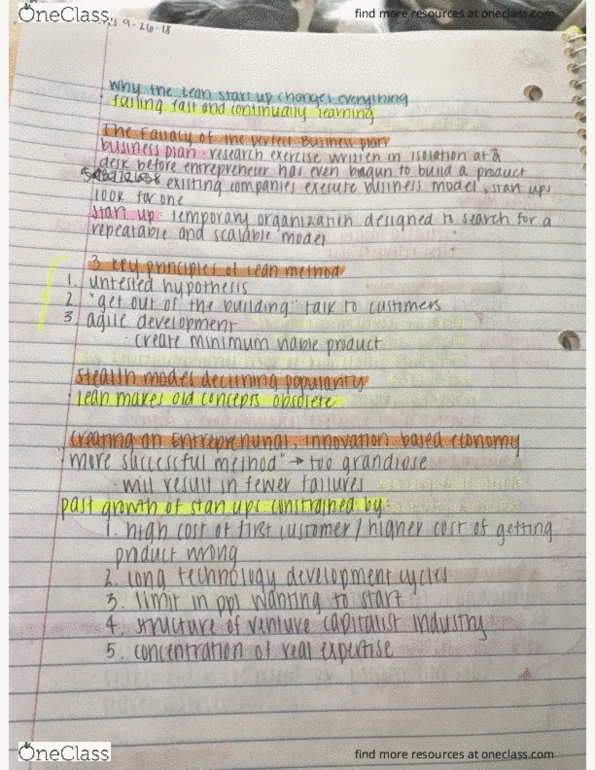 OneClass
find more resources at oneclass.com
9-26-18
why the lean start up changes everything
failing fast and continually learning
The Fallacy of the perfect Business plan
business plan: research exercise written in isolation at a
desk before entrepreneur has even begun to build a product
existing companies execute business model, start ups
look for one
start up: temporary organization designed to search for a
repeatable and scalable model
3 key principles of lean method
1. untested hypothesis
2. "get out of the building" talk to customers
3. agile development
· create minimum viable product
stealth modes declining popularity
· lean makes old concepts obsolete
creating an Entreprenurial, innovation based economy
more successful method" → too grandiose
· will result in fewer failures
past growth of start ups constrained by:
1. high cost of first customer / higher cost of getting
product wrong
2. long technology development cycles
3. limit in ppl wanting to start
4. structure of venture capitalist industry
5. concentration of real expertise
OneClass
find more resources at oneclass.com